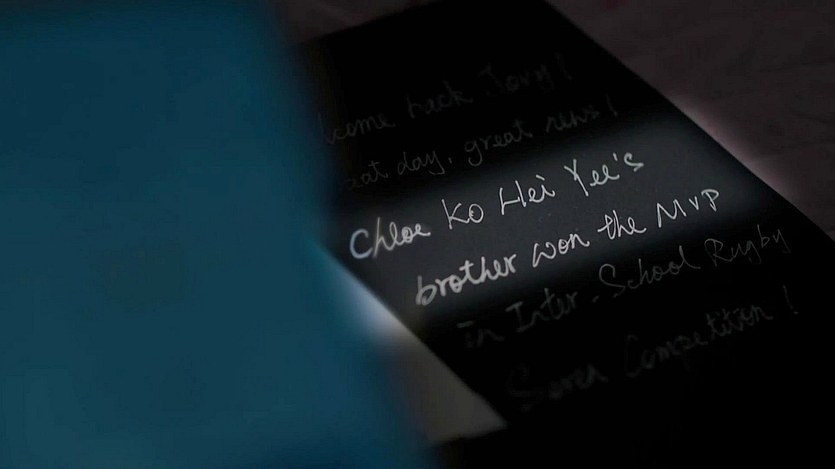 lcome back Tory!
eat day, great news!
Chloe Ko Hei Yee's
brother won the MVP
in Inter-School Rugby
Seven Competition!